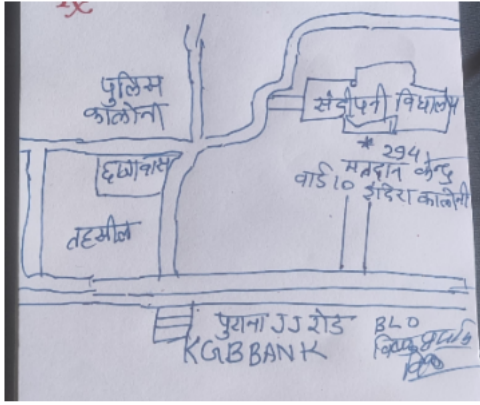 पुलिस
कालोनी
संदीपनी विधालय
* 294
मतदान केन्द्र
वार्ड 10 इंदिरा कालोनी
छात्रावास
तहसील
पुराना JJ रोड
KGB BANK
BLO